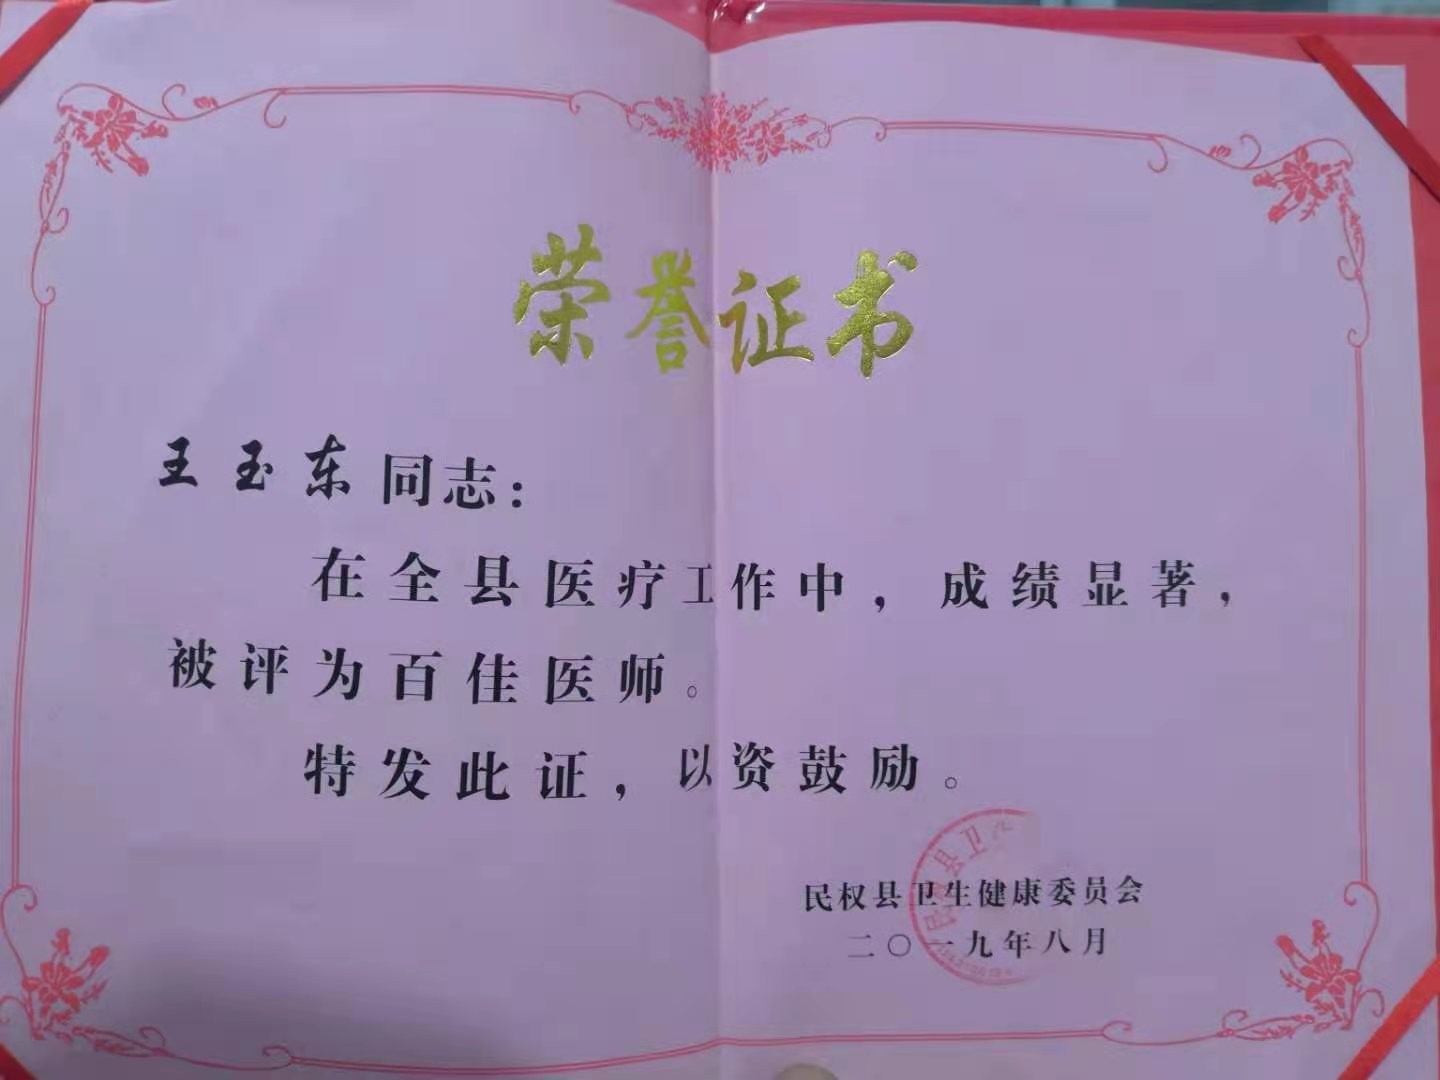 荣誉证书
王玉东同志：
在全县医疗工作中，成绩显著，
被评为百佳医师。
特发此证，以资鼓励。
民权县卫生健康委员会
二〇一九年八月
县卫